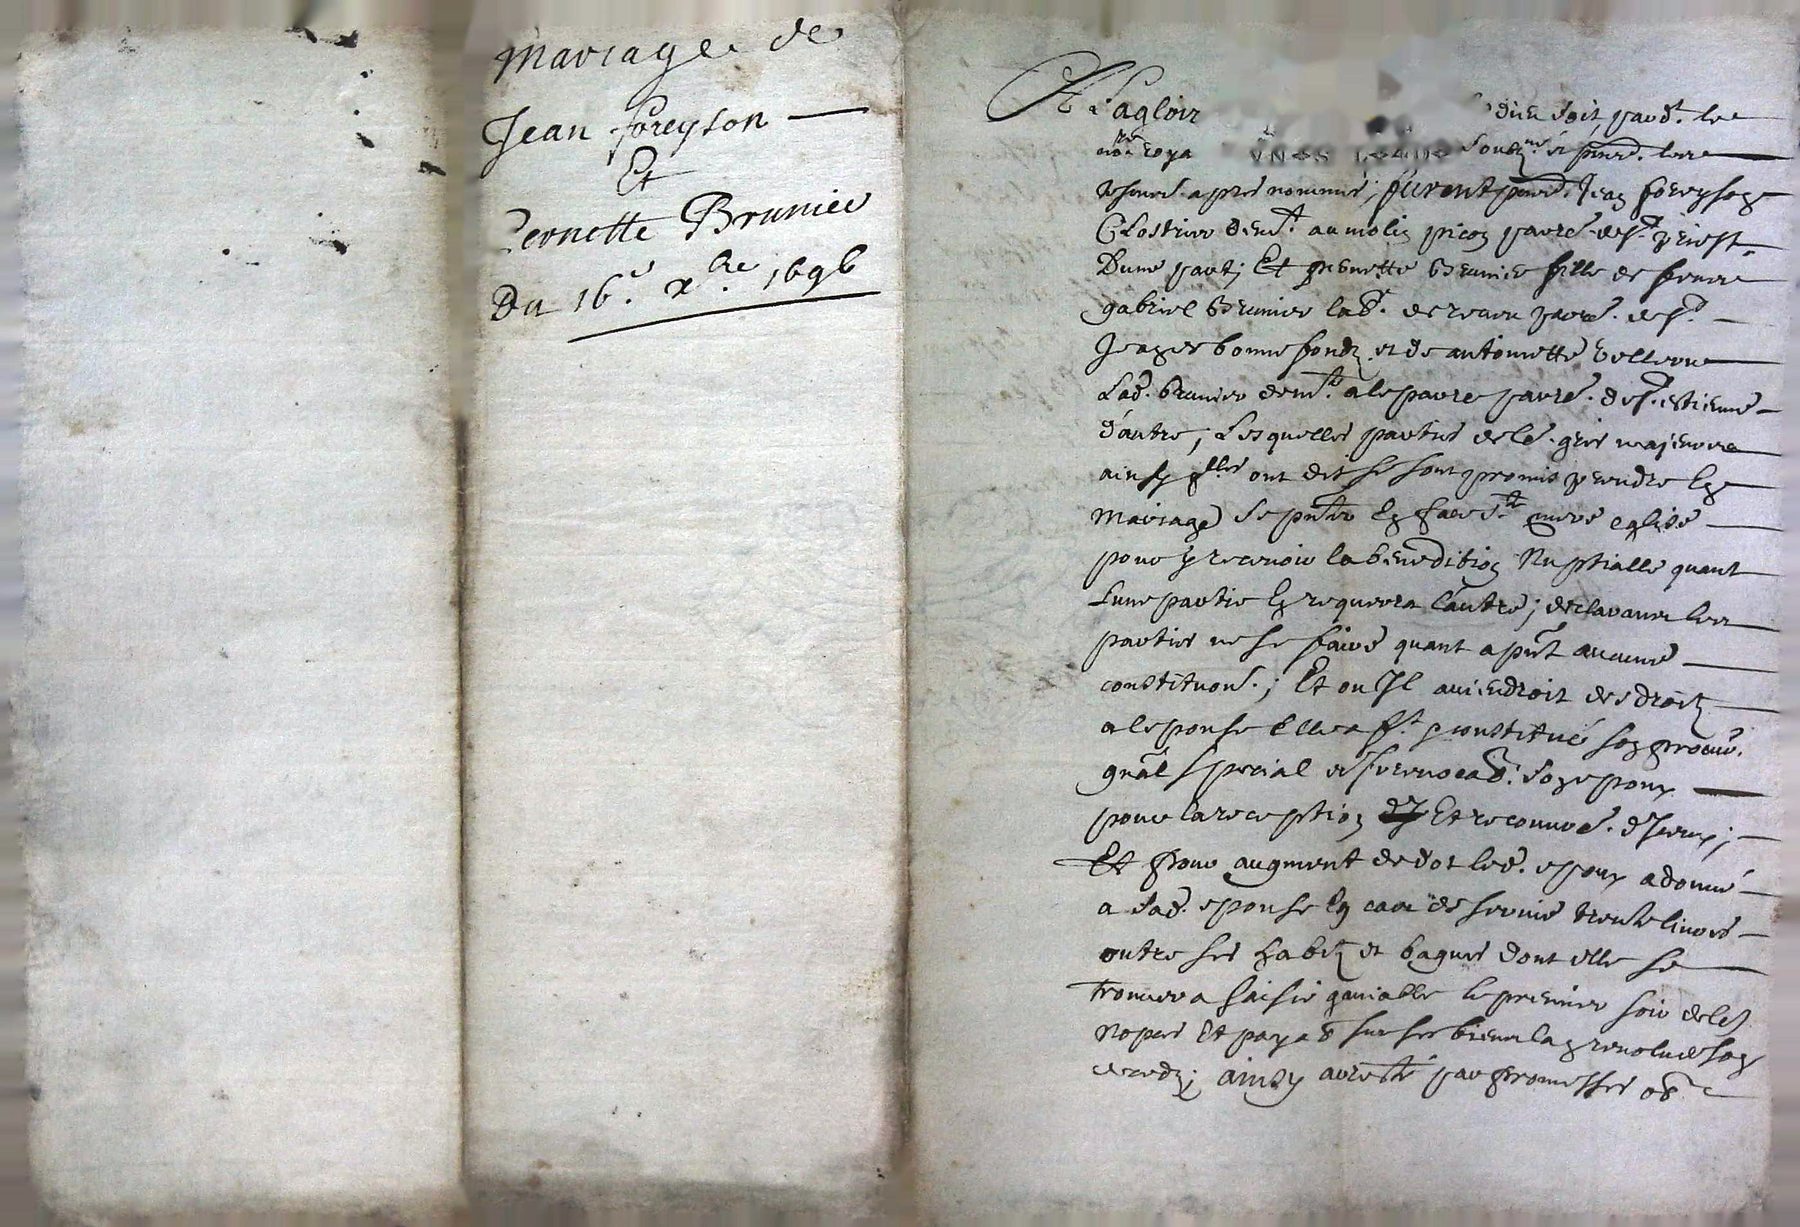 Mariage de
Jean foreyson
Et
Pernette Brunier
Du 16.e xbre 1696
A Lagloir dieu soit, pard.t le
no.re roya soub.né et pnts. les
tesmoins apres nommés; furent pnts. Jean foreyson
Clostrier dem.t au molin picon parr.e de s.t priest
Dune part; Et pernette Brunier fille de feu
gabriel Brunier lab.r de parr.e de s.t
Jean bonnefond et de antoinette
Lad. Brunier dem.t a parr.e de s.t estienne
d'autre; Lesquelles parties de le gres
ainsy qlles ont dit se sont promis prendre En
Mariage se pnter En face s.te mere eglise
pour y recevoir la benedition Nuptialle quant
Lune partie En requerra L'autre; declarant les
parties ne se faire quant a pnt aucune
constituon.; Et ou Il aviendroit des droitz
a lepouse Elle a f.t constitué son procur.
gnal special et son epoux
pour la reception Et reconnoe. diceux;
Et pour augment de dot led. epoux a donné
a lad. epouse En cas de survie trente livres
outre ses habitz et bagues dont elle se
trouvera saisie ganiable le premier soir de les
Nopces Et payab sur ses biens la son
decedz; ainsy arresté par promesses ob